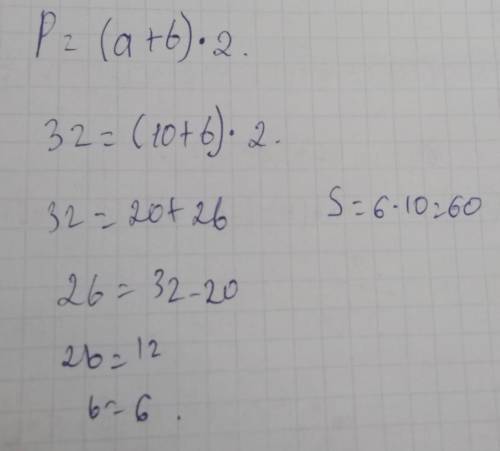 P = (a+b)·2.
32 = (10+b)·2.
32 = 20+2b
S = 6·10=60
2b = 32-20
2b = 12
b = 6.